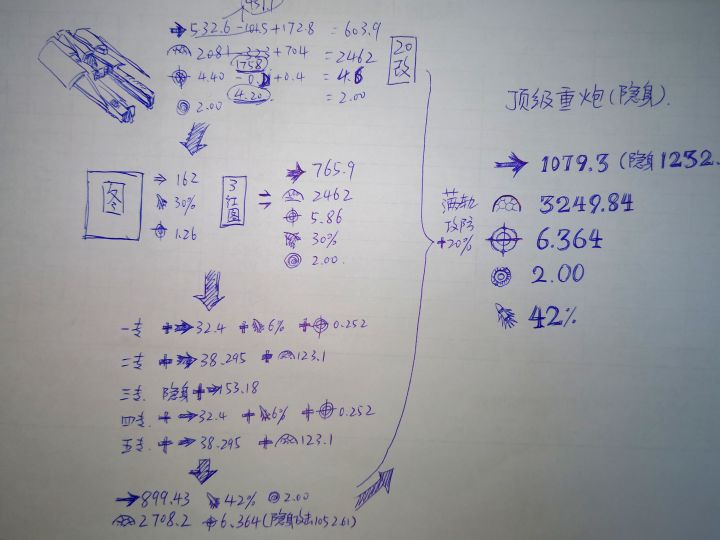 532.6-104.5+172.8 = 603.9
2081-323+704 = 2462
1758
4.40-0.+0.4 = 4.6
4.20
2.00 = 2.00
20改
图
162
30%
1.26
3红图
765.9
2462
5.86
30%
2.00
一专 +32.4 +6% +0.252
二专 +38.295 +123.1
三专 隐身+153.18
四专 +32.4 +6% +0.252
五专 +38.295 +123.1
899.43 42% 2.00
2708.2 6.364(隐身攻击1052.61)
满轨
攻防
+20%
顶级重炮(隐身).
1079.3(隐身1232.
3249.84
6.364
2.00
42%